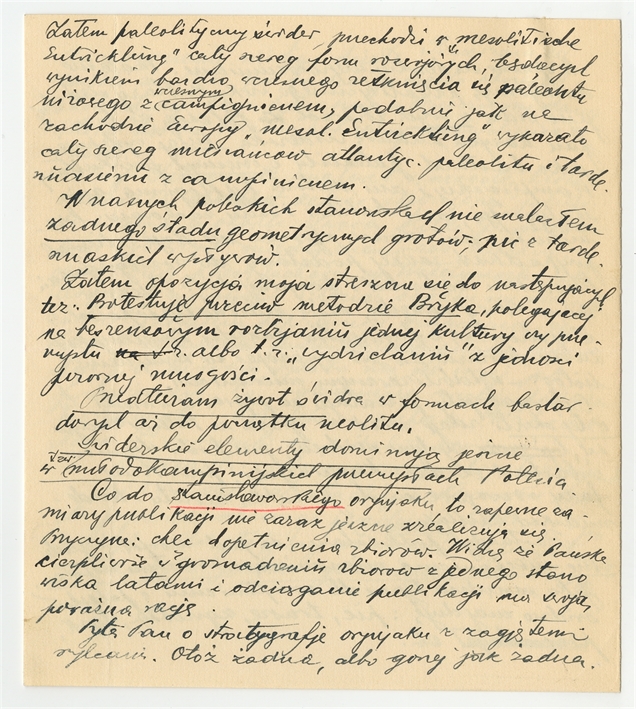 Zatem paleolityczny świder, przechodzi w mesolitische
Entwicklung" cały szereg form rozwojowych, będących
wynikiem bardzo wczesnego zetknięcia się paleolitu
niżowego z wczesnym campignienem, podobnie jak na
zachodzie Europy „mesol. Entwicklung" wykazało
cały szereg mieszańców atlantyc. paleolitu i tarde-
nuasienu z campinienem.
W naszych polskich stanowiskach nie znalazłem
żadnego śladu geometrycznych grotów, nic z tarde-
nuaskich wpływów.
Zatem opozycja moja streszcza się do następujących
tez. Protestuję przeciw metodzie Bryka, polegającej
na bezsensowym rozbijaniu jednej kultury czy prze-
mysłu na t.z. albo t.z. „wydzielaniu" z jedności
pozornej mnogości.
Przedłużam żywot świdra w formach bastar-
dowych aż do początku neolitu.
Świderskie elementy dominują jeszcze
w t.zw. młodokampinijskich przemysłach Polesia
Co do stanisławowskiego orynjaku, to zapewne za-
miary publikacji nie zaraz jeszcze zrealizują się.
Przyczyna: chęć dopełnienia zbiorów. Wiem że Pańska
cierpliwość w gromadzeniu zbiorów z jednego stano
wiska latami i odciąganie publikacji ma swoją
poważną rację.
Pyta Pan o stratygrafję orynjaku z zagiętemi
rylcami. Otóż żadna, albo gorzej jak żadna.